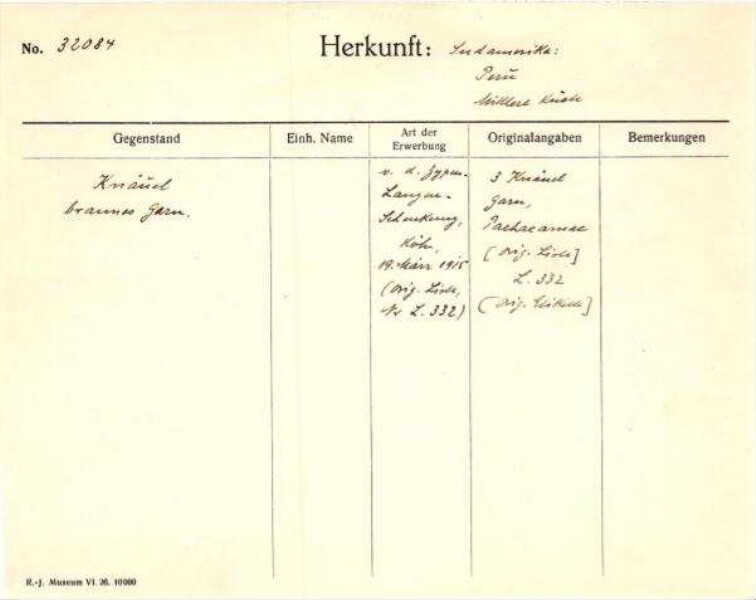 No. 32084
Herkunft: Südamerika:
Perú
Mittlere Küste
Gegenstand
Einh. Name
Art der
Erwerbung
Originalangaben
Bemerkungen
Knäuel
braunes Garn.
v. d. Zypen-
Langen-
Schenkung,
Köln,
19. März 1915
(Orig. Liste,
Nr L. 332)
3 Knäuel
Garn,
Pachacamac
[Orig. Liste]
L. 332
[Orig. Etikette]
R.-J. Museum VI. 26. 10000